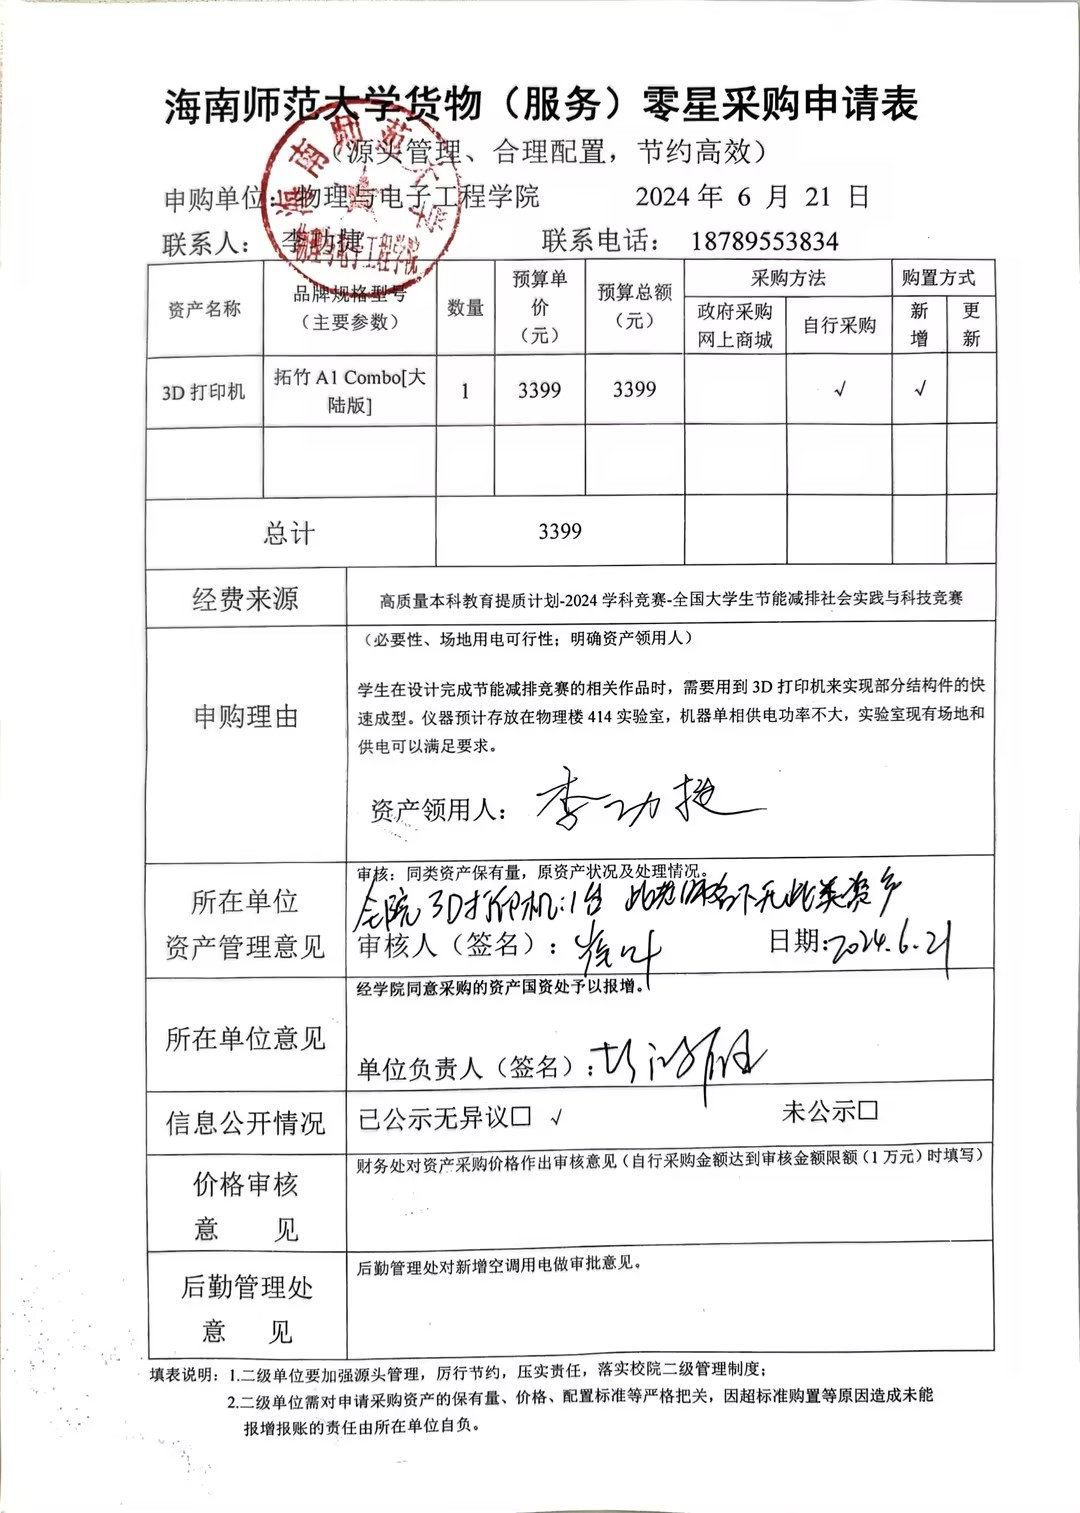 海南师范大学货物（服务）零星采购申请表
（源头管理、合理配置，节约高效）
申购单位：物理与电子工程学院 2024 年 6 月 21 日
联系人： 李功捷 联系电话： 18789553834
海南师范大学
物理与电子工程学院
资产名称 品牌规格型号（主要参数） 数量 预算单价（元） 预算总额（元） 采购方法 购置方式
政府采购网上商城 自行采购 新增 更新
3D 打印机 拓竹 A1 Combo[大陆版] 1 3399 3399 √ √
总计 3399
经费来源 高质量本科教育提质计划-2024 学科竞赛-全国大学生节能减排社会实践与科技竞赛
申购理由
（必要性、场地用电可行性；明确资产领用人）
学生在设计完成节能减排竞赛的相关作品时，需要用到 3D 打印机来实现部分结构件的快
速成型。仪器预计存放在物理楼 414 实验室，机器单相供电功率不大，实验室现有场地和
供电可以满足要求。
资产领用人： 李功捷
所在单位
资产管理意见
审核：同类资产保有量，原资产状况及处理情况。
全院3D打印机:1台 此老师名下无此类资产
审核人（签名）： 日期:2024.6.21
所在单位意见
经学院同意采购的资产国资处予以报增。
单位负责人（签名）：
信息公开情况 已公示无异议□ √ 未公示□
价格审核
意 见
财务处对资产采购价格作出审核意见（自行采购金额达到审核金额限额（1 万元）时填写）
后勤管理处
意 见
后勤管理处对新增空调用电做审批意见。
填表说明：1.二级单位要加强源头管理，厉行节约，压实责任，落实校院二级管理制度；
2.二级单位需对申请采购资产的保有量、价格、配置标准等严格把关，因超标准购置等原因造成未能
报增报账的责任由所在单位自负。